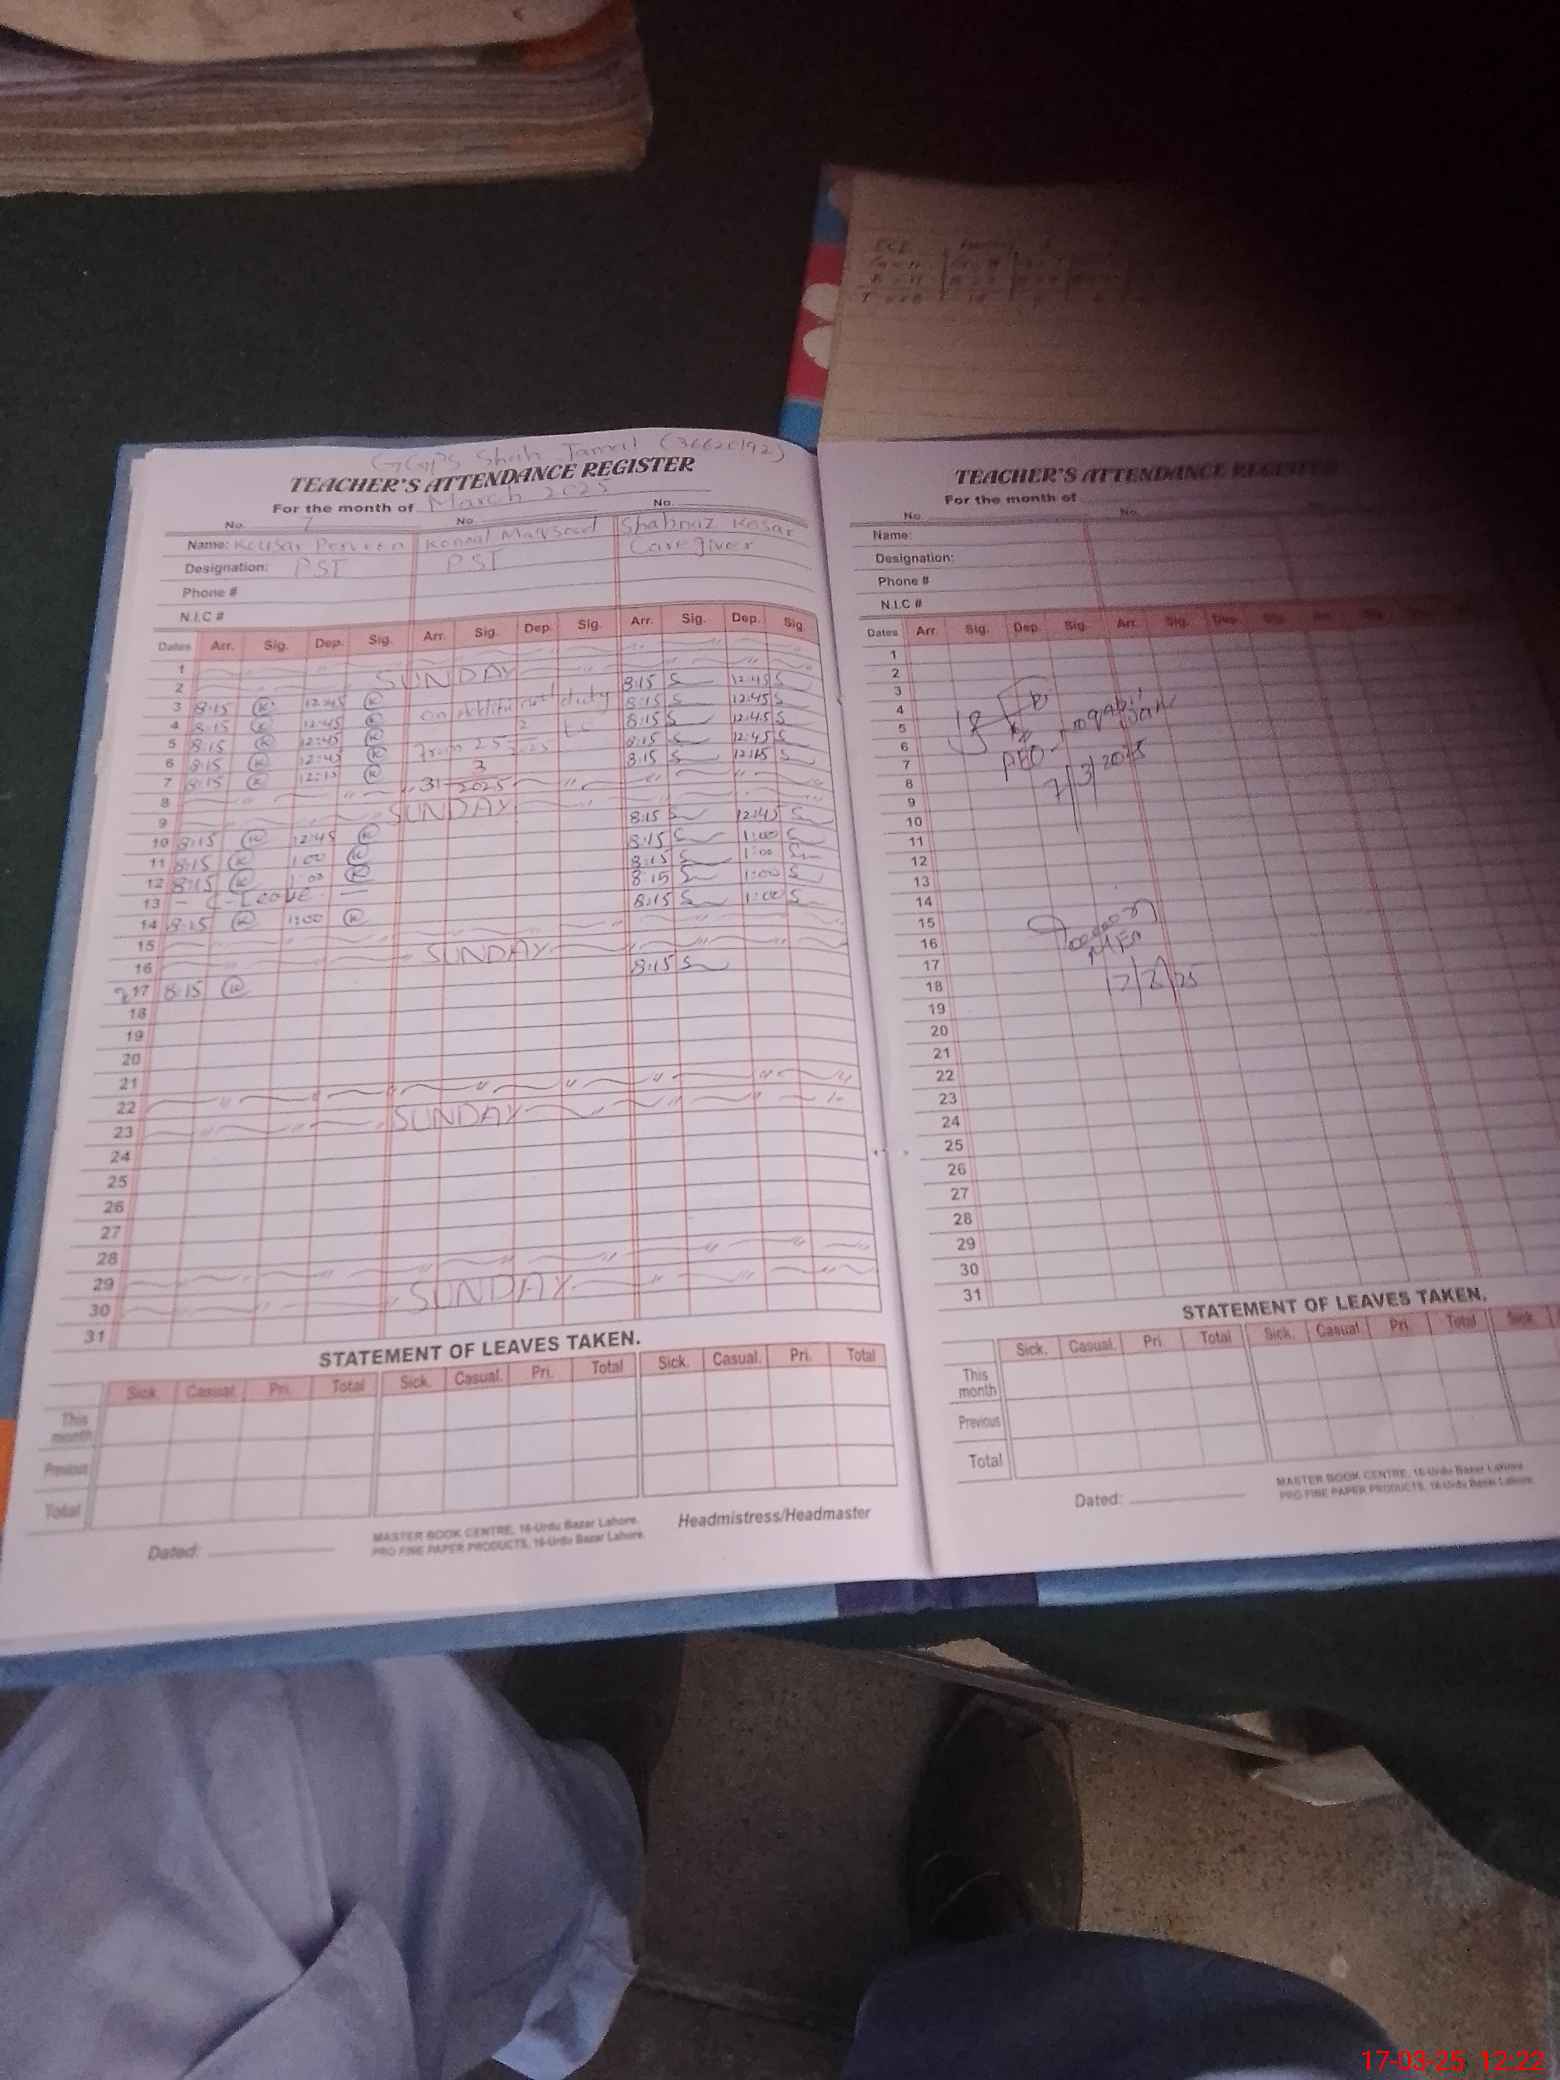 GGPS Shah Jamal (36620192)
TEACHER'S ATTENDANCE REGISTER
For the month of March 2025
No. 1 No. No.
Name: Kousar Perveen Konal Maqsood Shabnaz Kosar
Designation: PST PST Caregiver
Phone #
N.I.C #
Dates Arr. Sig. Dep. Sig. Arr. Sig. Dep. Sig. Arr. Sig. Dep. Sig.
1
2 SUNDAY
3 8:15 K 12:45 K 8:15 S 12:45 S
4 8:15 K 12:45 K on duty 8:15 S 12:45 S
5 8:15 K 12:45 K from 25 2 8:15 S 12:45 S
6 8:15 K 12:45 K 8:15 S 12:45 S
7 8:15 K 12:15 K 31 3 2025 8:15 S 12:15 S
8
9 SUNDAY
10 8:15 K 12:45 K 8:15 S 12:45 S
11 8:15 K 1:00 K 8:15 S 1:00 S
12 8:15 K 1:00 K 8:15 S 1:00 S
13 - C-Leave - 8:15 S 1:00 S
14 8:15 K 1:00 K 8:15 S 1:00 S
15
16 SUNDAY
17 8:15 K 8:15 S
18
19
20
21
22
23 SUNDAY
24
25
26
27
28
29
30 SUNDAY
31
STATEMENT OF LEAVES TAKEN.
Sick. Casual. Pri. Total Sick. Casual. Pri. Total Sick. Casual. Pri. Total
This month
Previous
Total
Dated:
MASTER BOOK CENTRE, 16-Urdu Bazar Lahore.
PRO FINE PAPER PRODUCTS, 16-Urdu Bazar Lahore.
Headmistress/Headmaster
TEACHER'S ATTENDANCE REGISTER
For the month of
No. No.
Name:
Designation:
Phone #
N.I.C #
Dates Arr. Sig. Dep. Sig. Arr. Sig. Dep. Sig. Sig.
1
2
3
4
5
6
7
8
9
10
11
12
13
14
15
16
17
18
19
20
21
22
23
24
25
26
27
28
29
30
31
7/3/2025
17/3/25
STATEMENT OF LEAVES TAKEN.
Sick. Casual. Pri. Total Sick. Casual. Pri. Total Sick.
This month
Previous
Total
Dated:
MASTER BOOK CENTRE, 16-Urdu Bazar Lahore.
PRO FINE PAPER PRODUCTS, 16-Urdu Bazar Lahore.
17-03-25 12:22